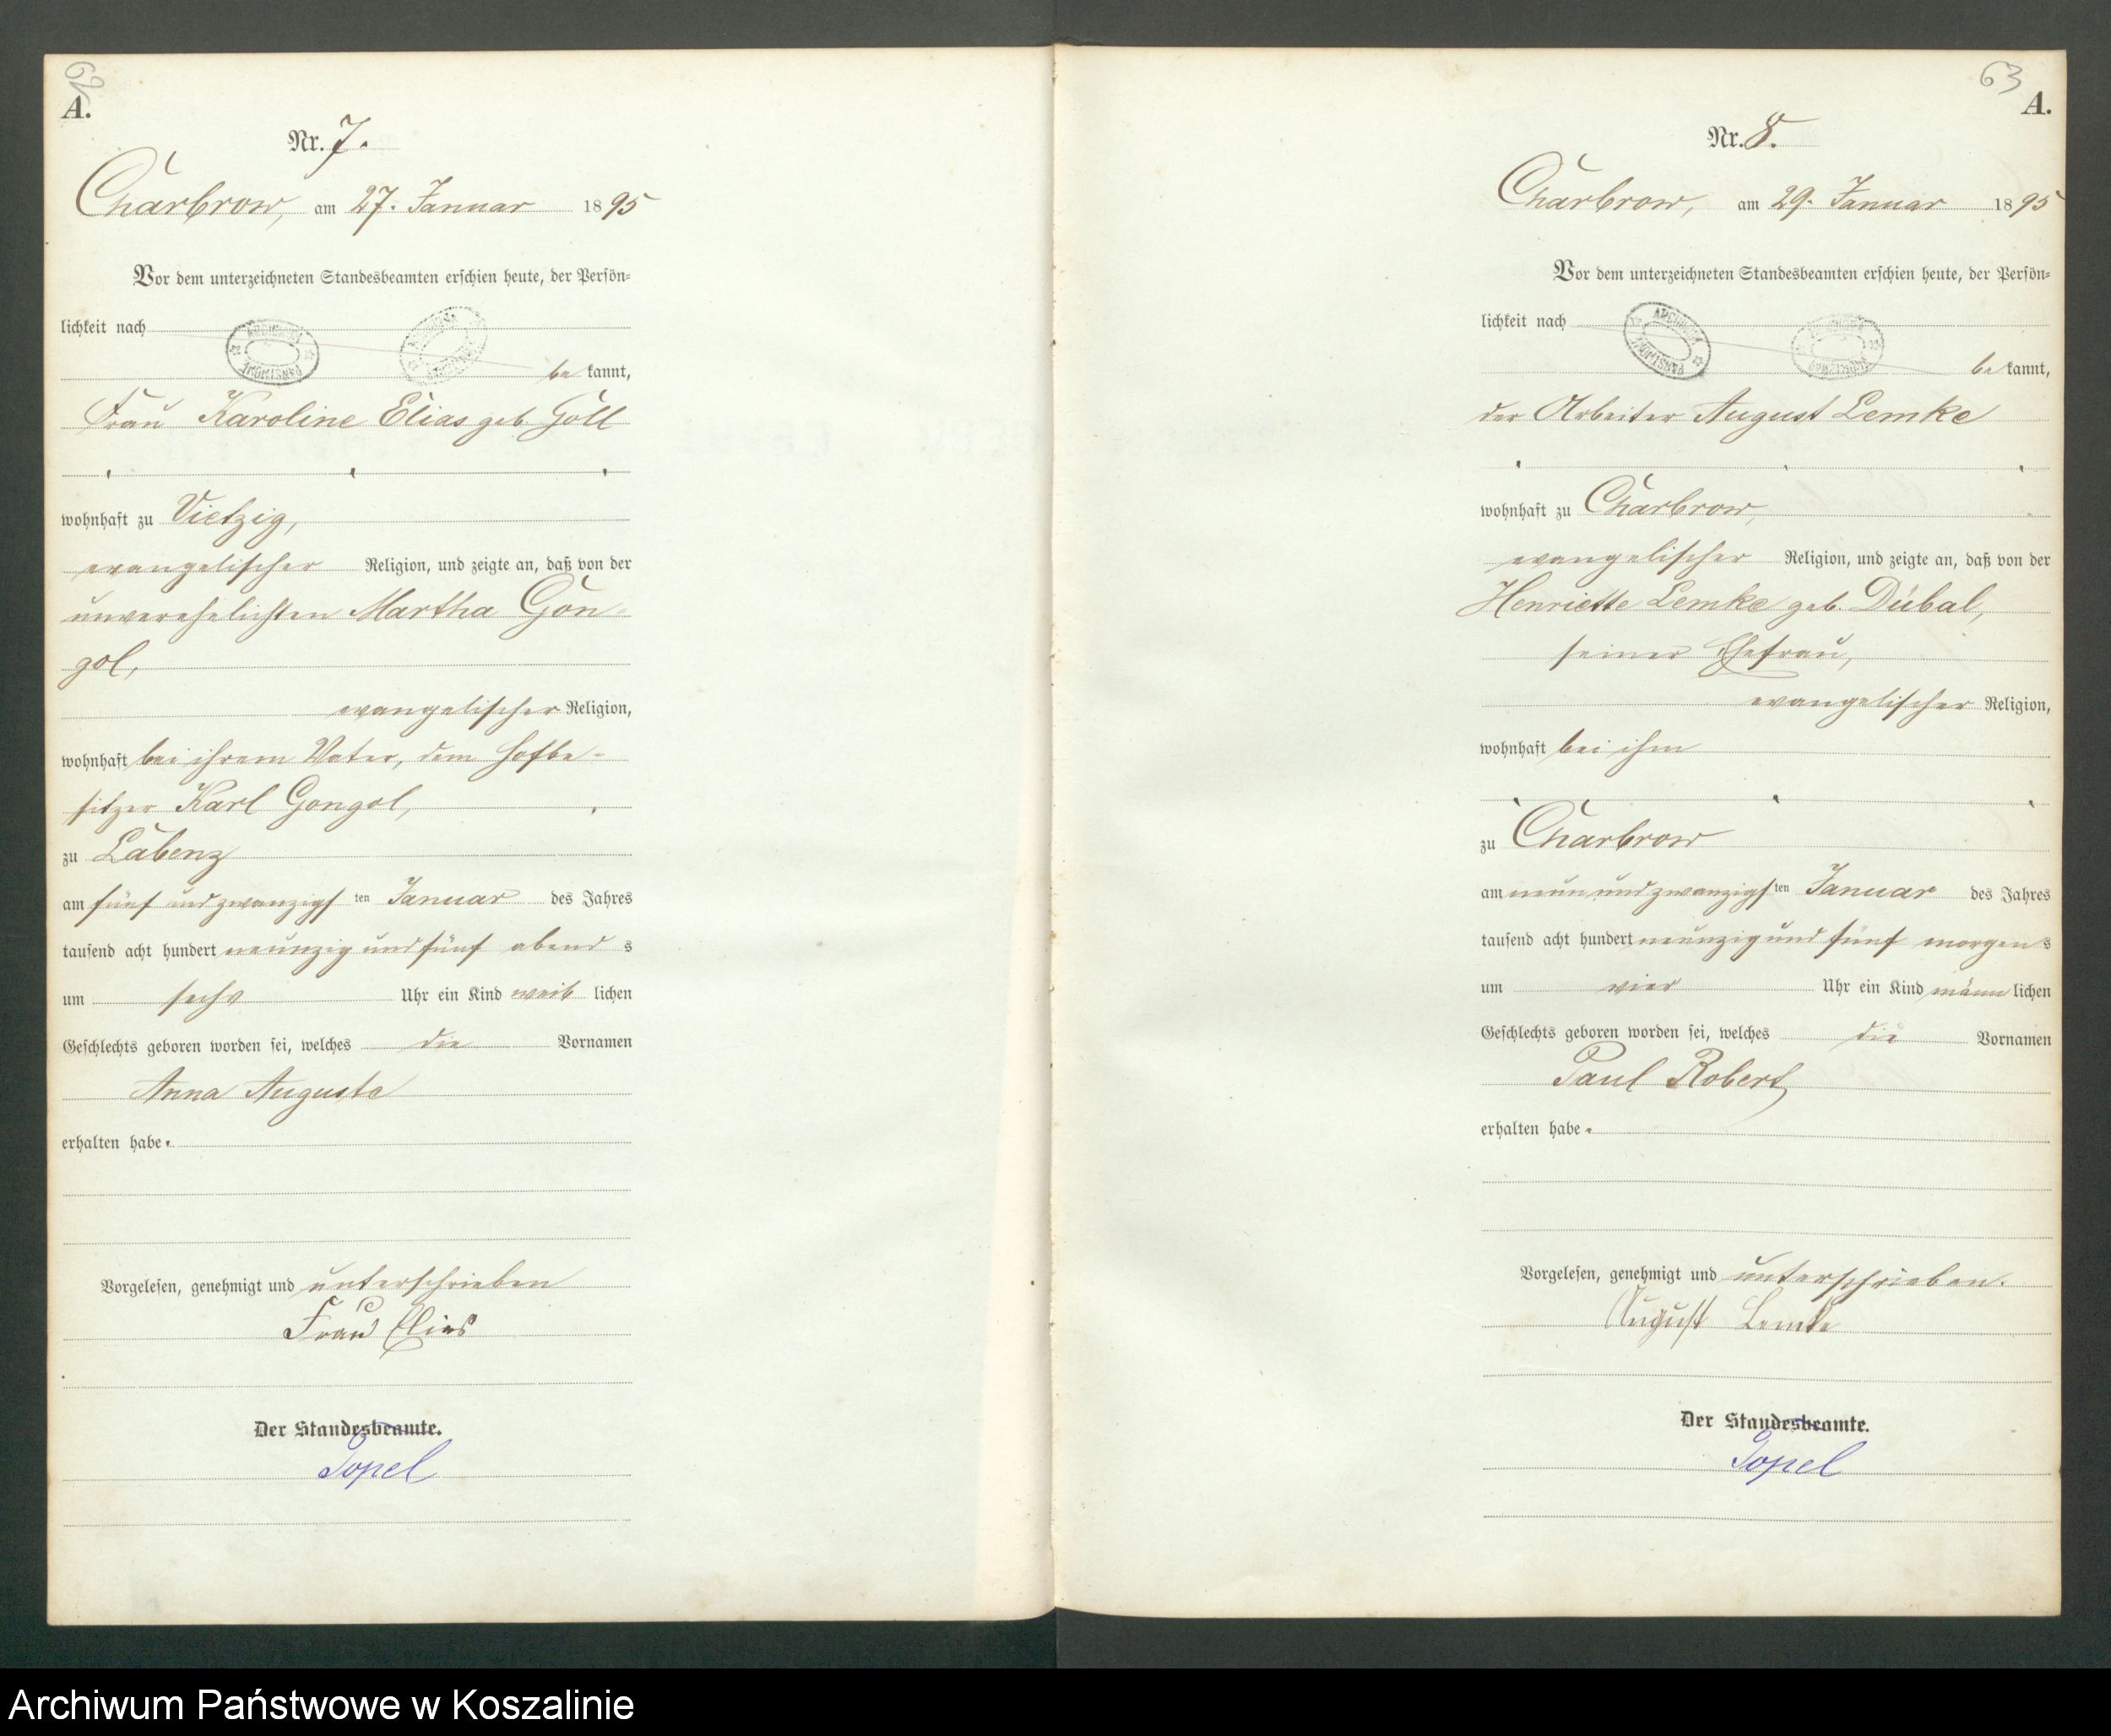 62
A.
Nr. 7.
Charbrow, am 27. Januar 1895
Vor dem unterzeichneten Standesbeamten erschien heute, der Persön-
lichkeit nach
be kannt,
Frau Karoline Elias geb. Göll
wohnhaft zu Vietzig,
evangelischer Religion, und zeigte an, daß von der
unverehelichten Martha Gon-
gol,
evangelischer Religion,
wohnhaft bei ihrem Vater, dem Hofbe-
sitzer Karl Gongol,
zu Labenz
am fünf und zwanzigs ten Januar des Jahres
tausend acht hundert neunzig und fünf abend s
um sechs Uhr ein Kind weib lichen
Geschlechts geboren worden sei, welches die Vornamen
Anna Auguste
erhalten habe.
Vorgelesen, genehmigt und unterschrieben
Frau Elias
Der Standesbeamte.
Popel
63
A.
Nr. 8.
Charbrow, am 29. Januar 1895
Vor dem unterzeichneten Standesbeamten erschien heute, der Persön-
lichkeit nach
be kannt,
der Arbeiter August Lemke
wohnhaft zu Charbrow,
evangelischer Religion, und zeigte an, daß von der
Henriette Lemke geb. Dübal,
seiner Ehefrau,
evangelischer Religion,
wohnhaft bei ihm
zu Charbrow
am neun und zwanzigs ten Januar des Jahres
tausend acht hundert neunzig und fünf morgen s
um vier Uhr ein Kind männ lichen
Geschlechts geboren worden sei, welches die Vornamen
Paul Robert
erhalten habe.
Vorgelesen, genehmigt und unterschrieben.
August Lemke
Der Standesbeamte.
Popel
Archiwum Państwowe w Koszalinie